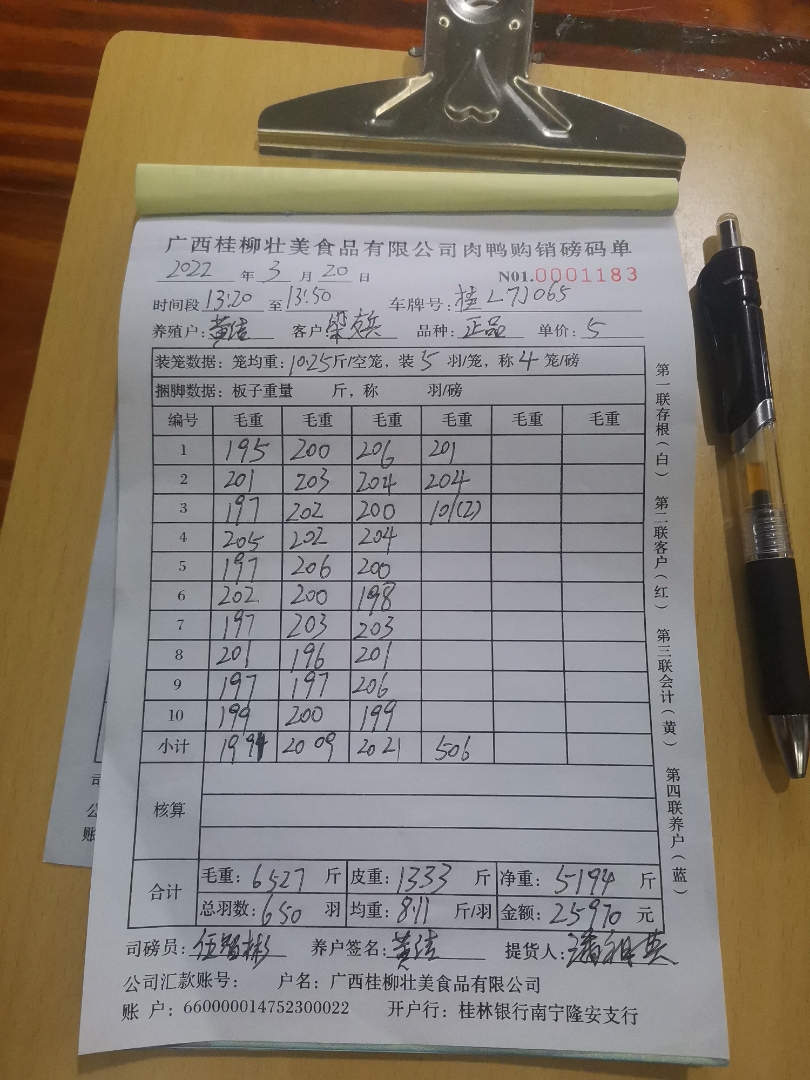 广西桂柳壮美食品有限公司肉鸭购销磅码单
2022 年 3 月 20 日 N01.0001183
时间段 13:20 至 13:50 车牌号: 桂L7J065
养殖户: 黄洁 客户 梁兵 品种: 正品 单价: 5
装笼数据: 笼均重: 10.25 斤/空笼, 装 5 羽/笼, 称 4 笼/磅
捆脚数据: 板子重量 斤, 称 羽/磅
编号 毛重 毛重 毛重 毛重 毛重 毛重
1 195 200 206 201
2 201 203 204 204
3 197 202 200 101(2)
4 205 202 204
5 197 206 200
6 202 200 198
7 197 203 203
8 201 196 201
9 197 197 206
10 199 200 199
小计 1991 2009 2021 506
核算
合计 毛重: 6527 斤 皮重: 1333 斤 净重: 5194 斤
总羽数: 650 羽 均重: 8.11 斤/羽 金额: 25970 元
司磅员: 伍彬 养户签名: 黄洁 提货人: 潘
公司汇款账号: 户名: 广西桂柳壮美食品有限公司
账 户: 660000014752300022 开户行: 桂林银行南宁隆安支行
第一联存根(白) 第二联客户(红) 第三联会计(黄) 第四联养户(蓝)
司
公
账